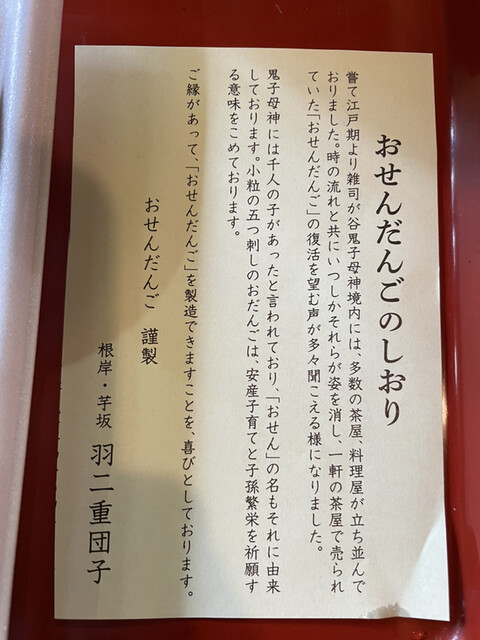 おせんだんごのしおり
嘗て江戸期より雑司が谷鬼子母神境内には、多数の茶屋、料理屋が立ち並んで
おりました。時の流れと共にいつしかそれらが姿を消し、一軒の茶屋で売られ
ていた「おせんだんご」の復活を望む声が多々聞こえる様になりました。
鬼子母神には千人の子があったと言われており、「おせん」の名もそれに由来
しております。小粒の五つ刺しのおだんごは、安産子育てと子孫繁栄を祈願す
る意味をこめております。
ご縁があって、「おせんだんご」を製造できますことを、喜びとしております。
おせんだんご 謹製
根岸・芋坂 羽二重団子